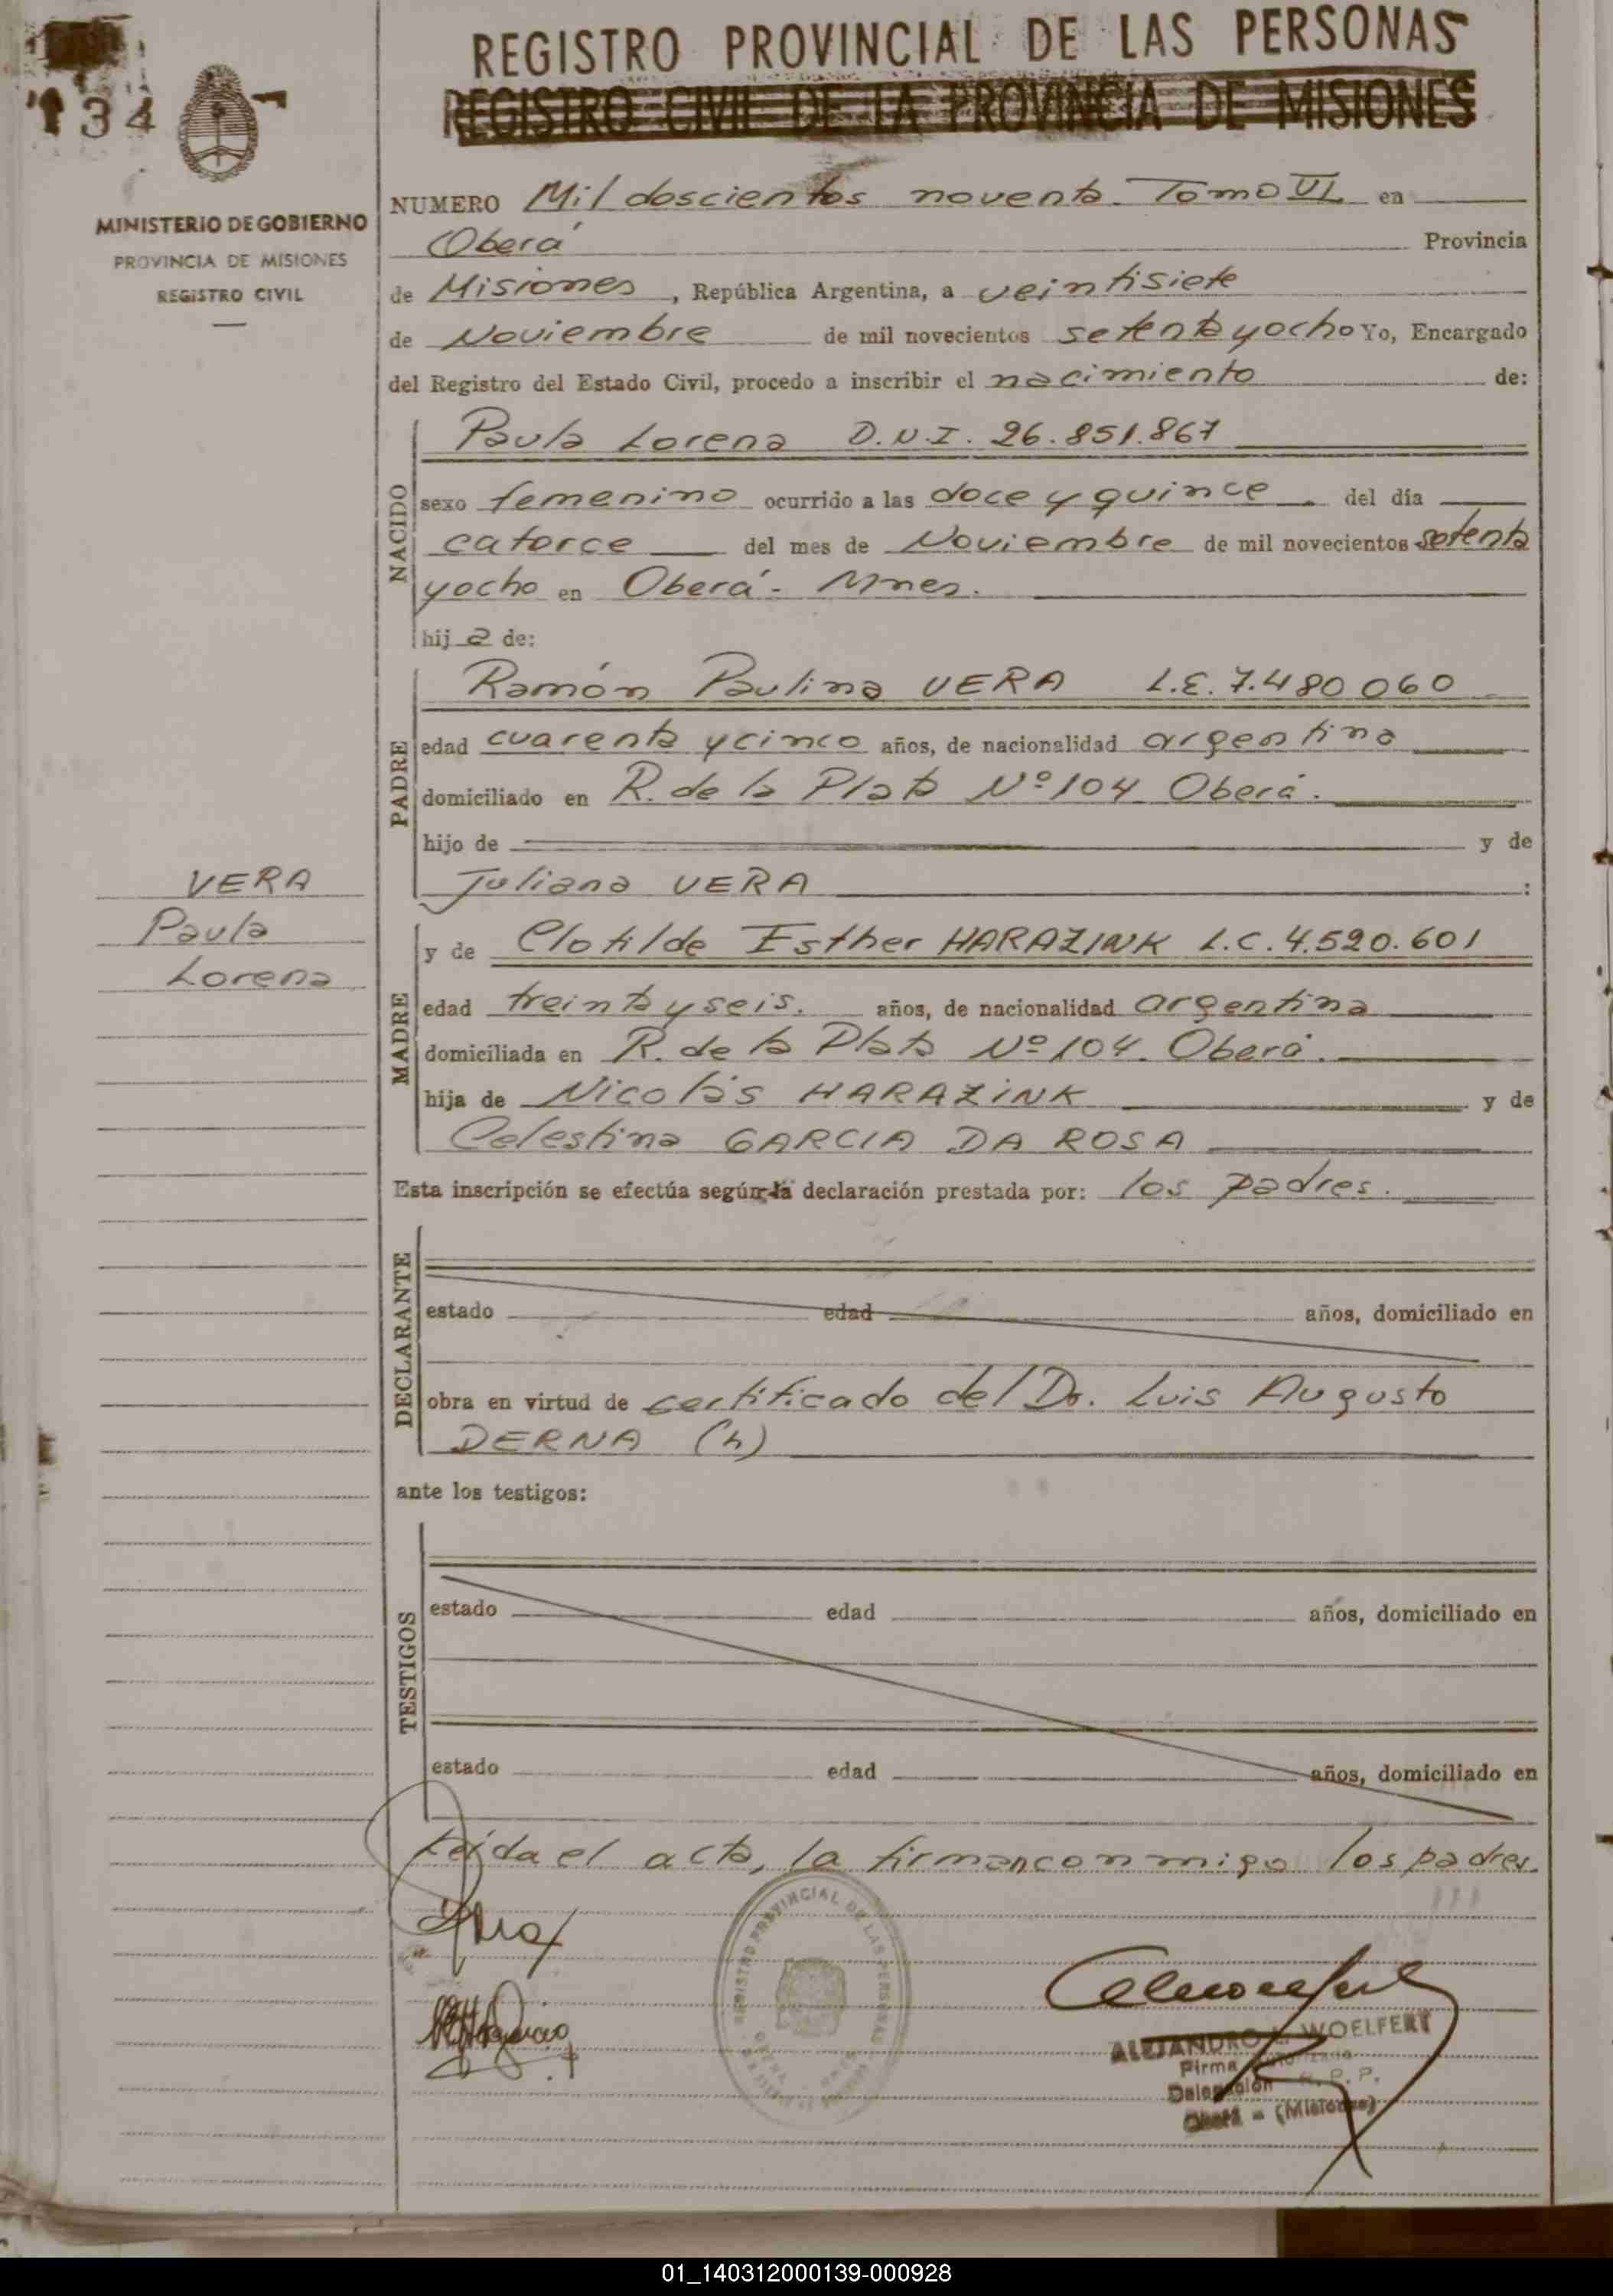 REGISTRO PROVINCIAL DE LAS PERSONAS
REGISTRO CIVIL DE LA PROVINCIA DE MISIONES
134
MINISTERIO DE GOBIERNO
PROVINCIA DE MISIONES
REGISTRO CIVIL
NUMERO Mil doscientos noventa Tomo VI en
Oberá Provincia
de Misiones, República Argentina, a veintisiete
de Noviembre de mil novecientos setenta y ocho Yo, Encargado
del Registro del Estado Civil, procedo a inscribir el nacimiento de:
NACIDO
Paula Lorena D.N.I. 26.851.867
sexo femenino ocurrido a las doce y quince del día
catorce del mes de Noviembre de mil novecientos setenta
y ocho en Oberá - Mnes.
hija de:
PADRE
Ramón Paulino VERA L.E. 7.480060
edad cuarenta y cinco años, de nacionalidad argentino
domiciliado en R. de la Plata Nº 104 Oberá.
hijo de y de
Juliana VERA :
VERA
Paula
Lorena
MADRE
y de Clotilde Esther HARAZINK L.C. 4.520.601
edad treinta y seis. años, de nacionalidad argentina
domiciliada en R. de la Plata Nº 104. Oberá.
hija de Nicolás HARAZINK y de
Celestina GARCIA DA ROSA
Esta inscripción se efectúa según la declaración prestada por: los padres.
DECLARANTE
estado edad años, domiciliado en
obra en virtud de certificado del Dr. Luis Augusto
DERNA (h)
ante los testigos:
TESTIGOS
estado edad años, domiciliado en
estado edad años, domiciliado en
Leída el acta, la firman conmigo los padres.
REGISTRO PROVINCIAL DE LAS PERSONAS
ALEJANDRO WOELFERT
Firma Autorizada
Delegación R.P.P.
Oberá - (Misiones)
01_140312000139-000928